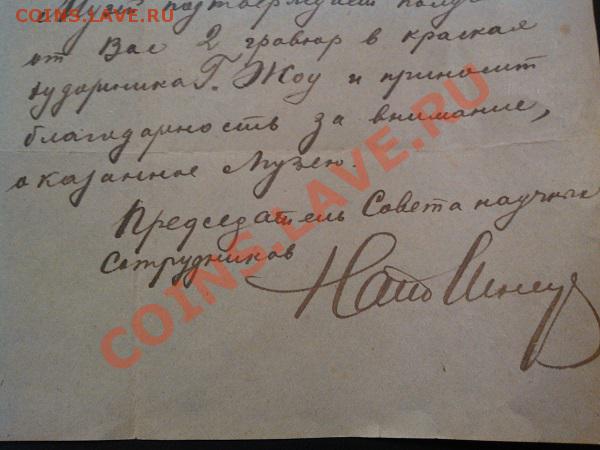 COINS.LAVE.RU
Музей подтверждает полу
от Вас 2 гравюр в красках
художника Г. Жоу и приносит
благодарность за внимание,
оказанное Музею.
Председатель Совета научных
сотрудников
COINS.LAVE.RU
COINS.LAVE.RU